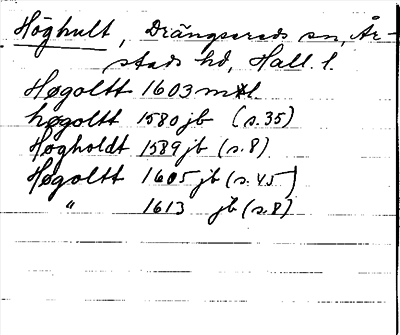 Höghult, Drängsereds sn, År-
stads hd, Hall. l.
Høgoltt 1603 mtl.
høgoltt 1580 jb (s.35)
Høgholdt 1589 jb (s.8)
Høgoltt 1605 jb (s.45)
" 1613 jb (s.8)